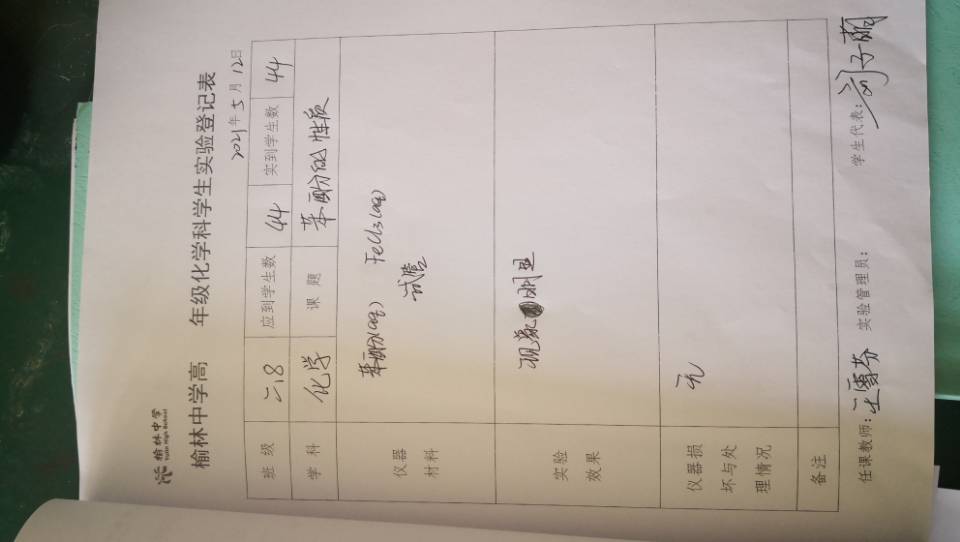 榆林中学
Yulin High School
榆林中学高 年级化学科学生实验登记表
2021年5月12日
班级 二.8 应到学生数 44 实到学生数 44
学科 化学 课题 苯酚的性质
仪器材料 苯酚(aq) FeCl3(aq)
试管
实验效果 现象明显
仪器损坏与处理情况 无
备注
任课教师: 王春芬 实验管理员: 学生代表: 刘子萌